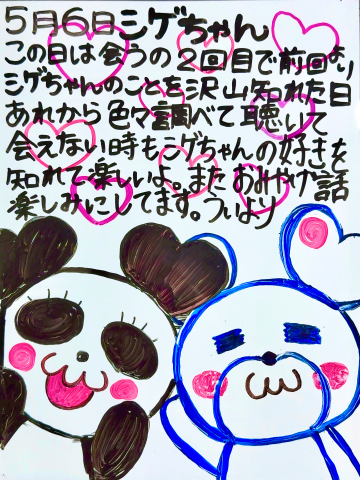 5月6日シゲちゃん
この日は会うの2回目で前回より
シゲちゃんのことを沢山知れた日
あれから色々調べて聴いて
会えない時もシゲちゃんの好きを
知れて楽しいよ。またおみやげ話
楽しみにしてます。ういより